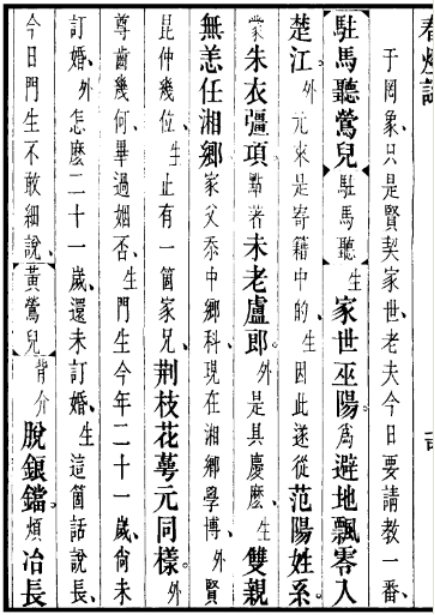 于罔象、只是賢契家世、老夫今日要請教一番、
駐馬聽鶯兒駐馬聽生家世巫陽。爲避地飄零入
楚江。外元來是寄籍中的、生因此遂從范陽姓系。
蒙朱衣彊項。點著未老盧郎。外是具慶麽、生雙親
無恙任湘鄉家父忝中鄉科、現在湘鄉學博、外賢
昆仲幾位、生止有一箇家兄、荆枝花萼元同樣。外
尊齒幾何、畢過姻否、生門生今年二十一歲、尙未
訂婚、外怎麽二十一歲、還未訂婚、生這箇話說長、
今日門生不敢細說、黃鶯兒背介脫鋃鐺。煩冶長